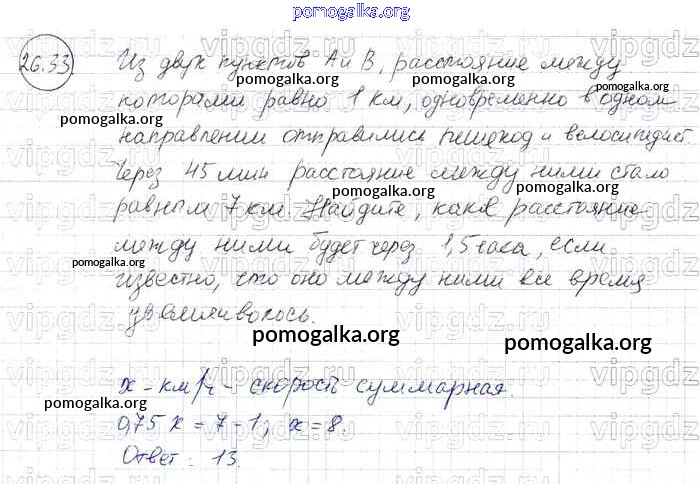 pomogalka.org
26.33
Из двух пунктов А и В, расстояние между
pomogalka.org
которыми равно 1 км, одновременно в одном
pomogalka.org
направлении отправились пешеход и велосипедист.
Через 45 мин расстояние между ними стало
pomogalka.org
равным 7 км. Найдите, какое расстояние
между ними будет через 1,5 часа, если
pomogalka.org
известно, что оно между ними все время
увеличивалось.
pomogalka.org
pomogalka.org
x - км/ч - скорость суммарная.
pomogalka.org
0,75 x = 7 - 1; x = 8.
Ответ: 13.
pomogalka.org